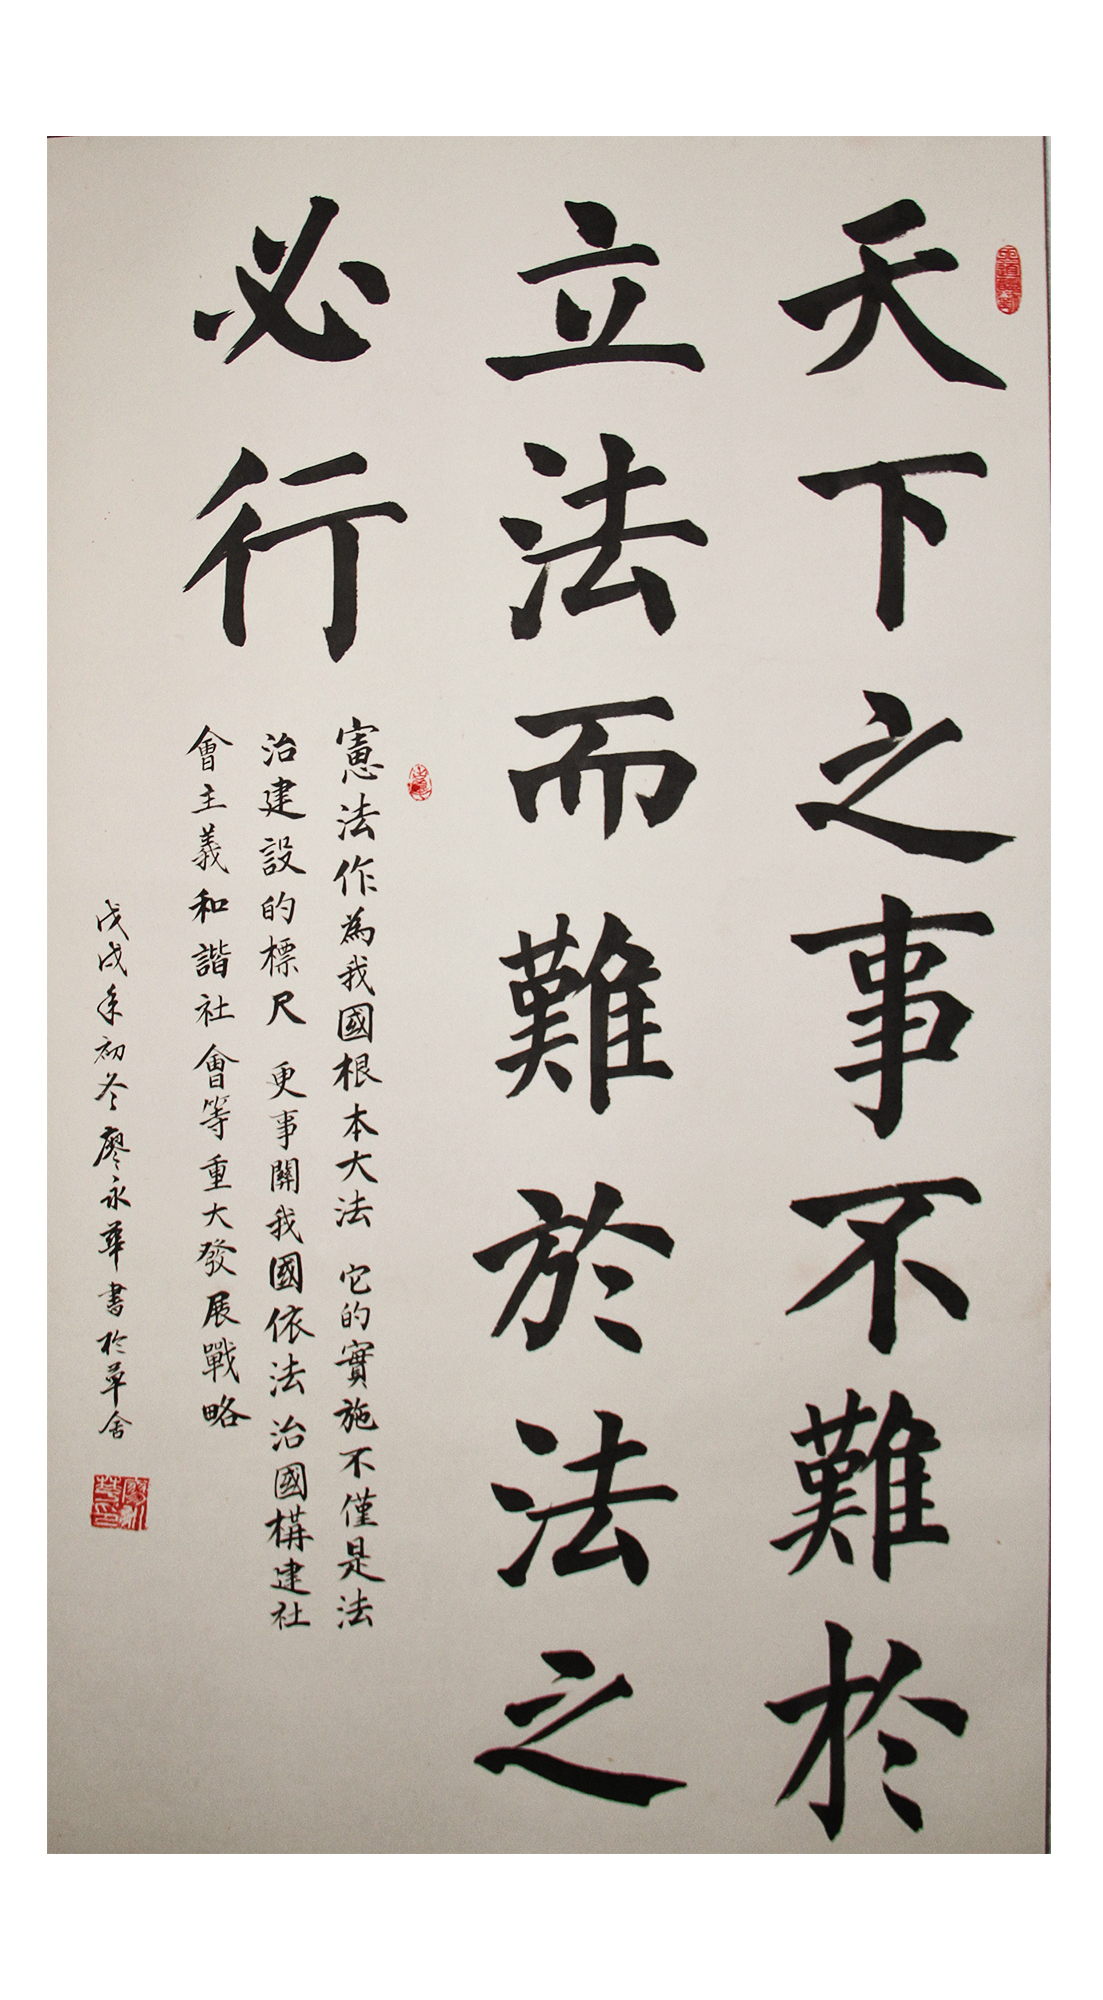 天下之事不難於
立法而難於法之
必行
憲法作為我國根本大法 它的實施不僅是法
治建設的標尺 更事關我國依法治國構建社
會主義和諧社會等重大發展戰略
戊戌年初冬廖永華書於草舍